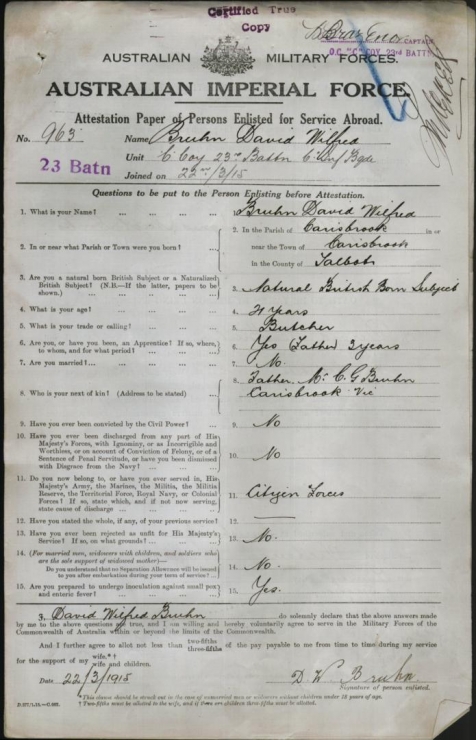 Certified True
Copy
CAPTAIN
O.C. "C" COY. 23rd BATTN
AUSTRALIAN MILITARY FORCES.
AUSTRALIAN IMPERIAL FORCE.
Attestation Paper of Persons Enlisted for Service Abroad.
No. 963 Name Bruhn David Wilfred
23 Batn
Unit C Coy 23rd Battn 6 Inf Bgde
Joined on 22nd/3/15
Questions to be put to the Person Enlisting before Attestation.
1. What is your Name? ... ... ... ... Bruhn David Wilfred
2. In or near what Parish or Town were you born? ... 2. In the Parish of Carisbrook in or
near the Town of Carisbrook
In the County of Talbot
3. Are you a natural born British Subject or a Naturalized
British Subject? (N.B.—If the latter, papers to be
shown.) ... 3. Natural British Born Subject
4. What is your age? ... ... 4. 21 years
5. What is your trade or calling? ... ... 5. Butcher
6. Are you, or have you been, an Apprentice? If so, where,
to whom, and for what period? ... ... 6. Yes (Father) 2 years
7. Are you married? ... ... ... 7. No.
8. Who is your next of kin? (Address to be stated) ... 8. Father, Mr C. G Bruhn
Carisbrook Vic
9. Have you ever been convicted by the Civil Power? ... 9. No
10. Have you ever been discharged from any part of His
Majesty's Forces, with Ignominy, or as Incorrigible and
Worthless, or on account of Conviction of Felony, or of a
Sentence of Penal Servitude, or have you been dismissed
with Disgrace from the Navy? ... ... 10. No
11. Do you now belong to, or have you ever served in, His
Majesty's Army, the Marines, the Militia, the Militia
Reserve, the Territorial Force, Royal Navy, or Colonial
Forces? If so, state which, and if not now serving,
state cause of discharge ... ... 11. Citizen Forces
12. Have you stated the whole, if any, of your previous service? 12. —
13. Have you ever been rejected as unfit for His Majesty's
Service? If so, on what grounds? ... ... 13. No.
14. (For married men, widowers with children, and soldiers who
are the sole support of widowed mother)—
Do you understand that no Separation Allowance will be issued
to you after embarkation during your term of service? ... 14. No.
15. Are you prepared to undergo inoculation against small pox
and enteric fever? ... ... ... 15. Yes.
I, David Wilfred Bruhn do solemnly declare that the above answers made
by me to the above questions are true, and I am willing and hereby voluntarily agree to serve in the Military Forces of the
Commonwealth of Australia within or beyond the limits of the Commonwealth.
And I further agree to allot not less than two-fifths three-fifths of the pay payable to me from time to time during my service
for the support of my wife.*†
wife and children.
Date 22/3/1915 D. W. Bruhn
Signature of person enlisted.
*This clause should be struck out in the case of unmarried men or widowers without children under 18 years of age.
†Two-fifths must be allotted to the wife, and if there are children three-fifths must be allotted.